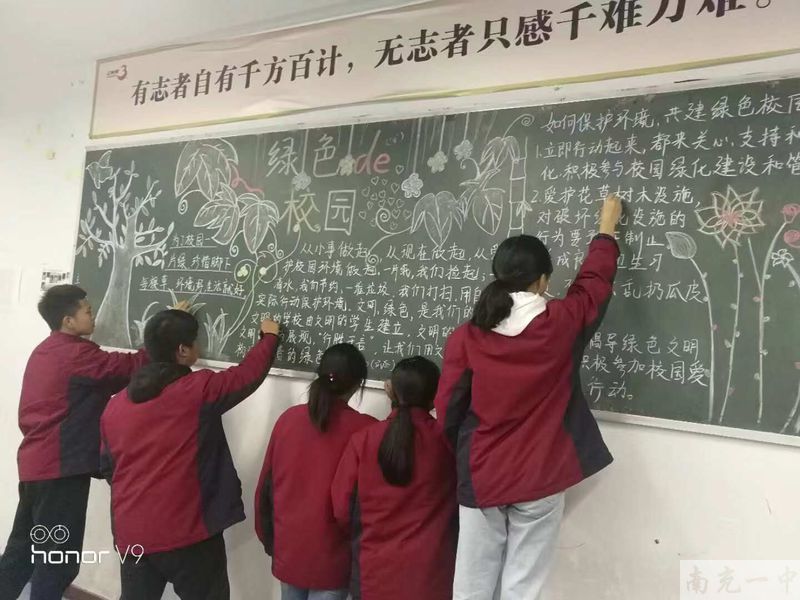 有志者自有千方百计，无志者只感千难万难。
绿色de
校园
为了校园一
片绿，珍惜脚下
从小事做起，从现在做起，从
护校园环境做起，一片纸，我们捡起；
滴水，我们节约，一座垃圾，我们打扫，用
实际行动保护环境，文明，绿色，是我们的
文明的学校由文明的学生建立，文明的
文明
展现，"行胜于言"，让我们用文
的绿色
如何保护环境，共建绿色校园
1.立即行动起来，都来关心、支持
化，积极参与校园绿化建设和管
2.爱护花草树木设施，
对破坏绿化设施的
行为要
制止
成
卫生习
乱扔瓜皮
倡导绿色文明
积极参加校园爱
行动。
honor V9
南充一中